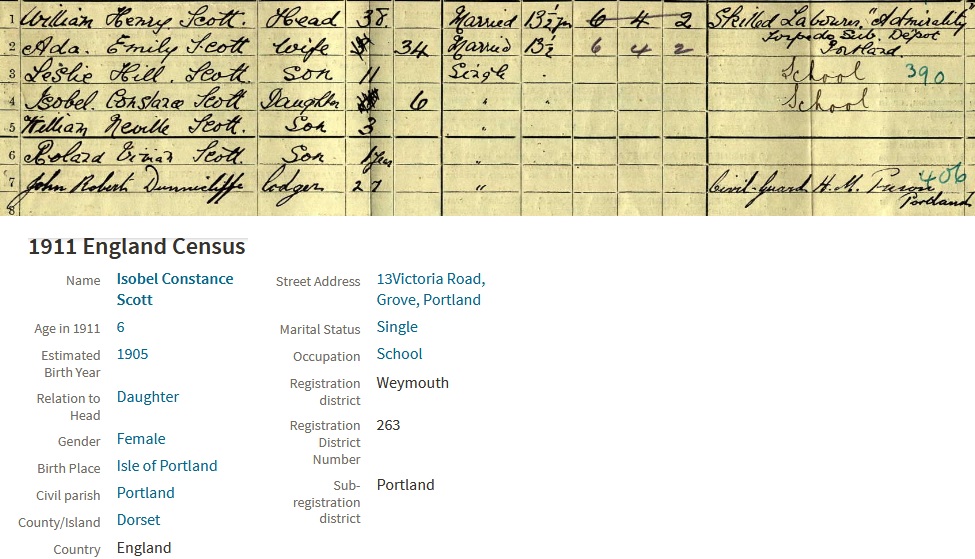 1 William Henry Scott. Head 38. Married 13½ yrs 6 4 2 Skilled Labourer, "Admirality
Torpedo Sub. Depot
2 Ada. Emily Scott Wife 34 Married 13½ 6 4 2 Portland.
3 Leslie Hill. Scott. Son 11 Single School 390
4 Isobel. Constance Scott Daughter 6 " " School
5 William Neville Scott. Son 3 "
6 Roland Vivian Scott. Son 1 "
7 John Robert Dunnicliffe lodger 27 " Civil-Guard H.M. Prison 406
Portland
8
1911 England Census
Name Isobel Constance Scott
Age in 1911 6
Estimated Birth Year 1905
Relation to Head Daughter
Gender Female
Birth Place Isle of Portland
Civil parish Portland
County/Island Dorset
Country England
Street Address 13Victoria Road, Grove, Portland
Marital Status Single
Occupation School
Registration district Weymouth
Registration District Number 263
Sub-registration district Portland